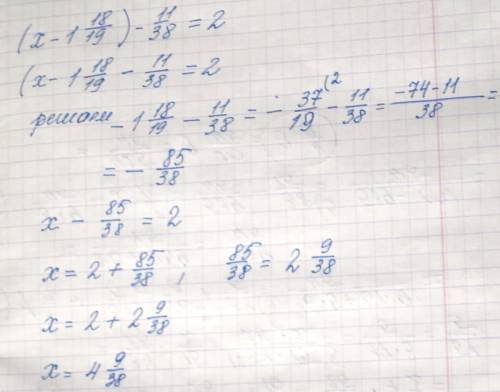 (x - 1 18/19) - 11/38 = 2
(x - 1 18/19 - 11/38 = 2
решаем - 1 18/19 - 11/38 = - 37/19 (2 - 11/38 = -74-11/38 =
= - 85/38
x - 85/38 = 2
x = 2 + 85/38 , 85/38 = 2 9/38
x = 2 + 2 9/38
x = 4 9/38